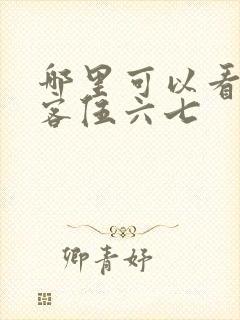 哪里可以看
客伍六七
卿青妤